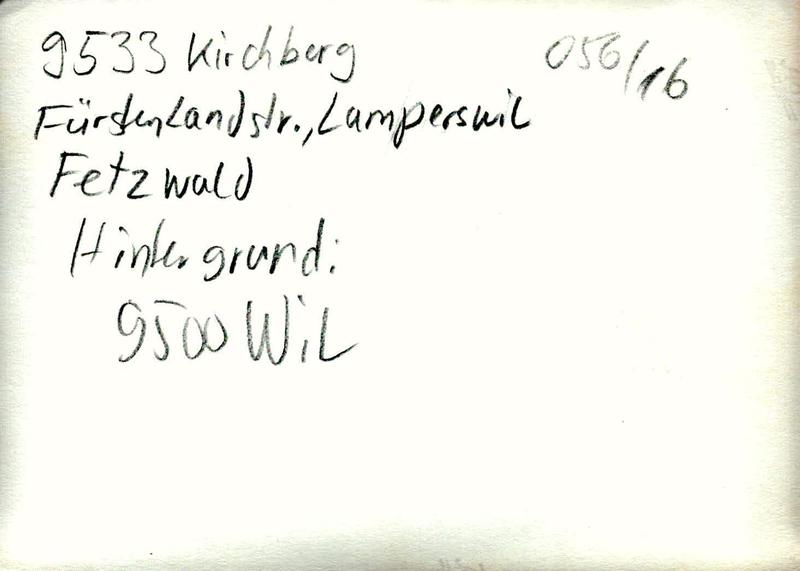 9533 Kirchberg 056/16
Fürstenlandstr., Lamperswil
Fetzwald
Hintergrund:
9500 Wil